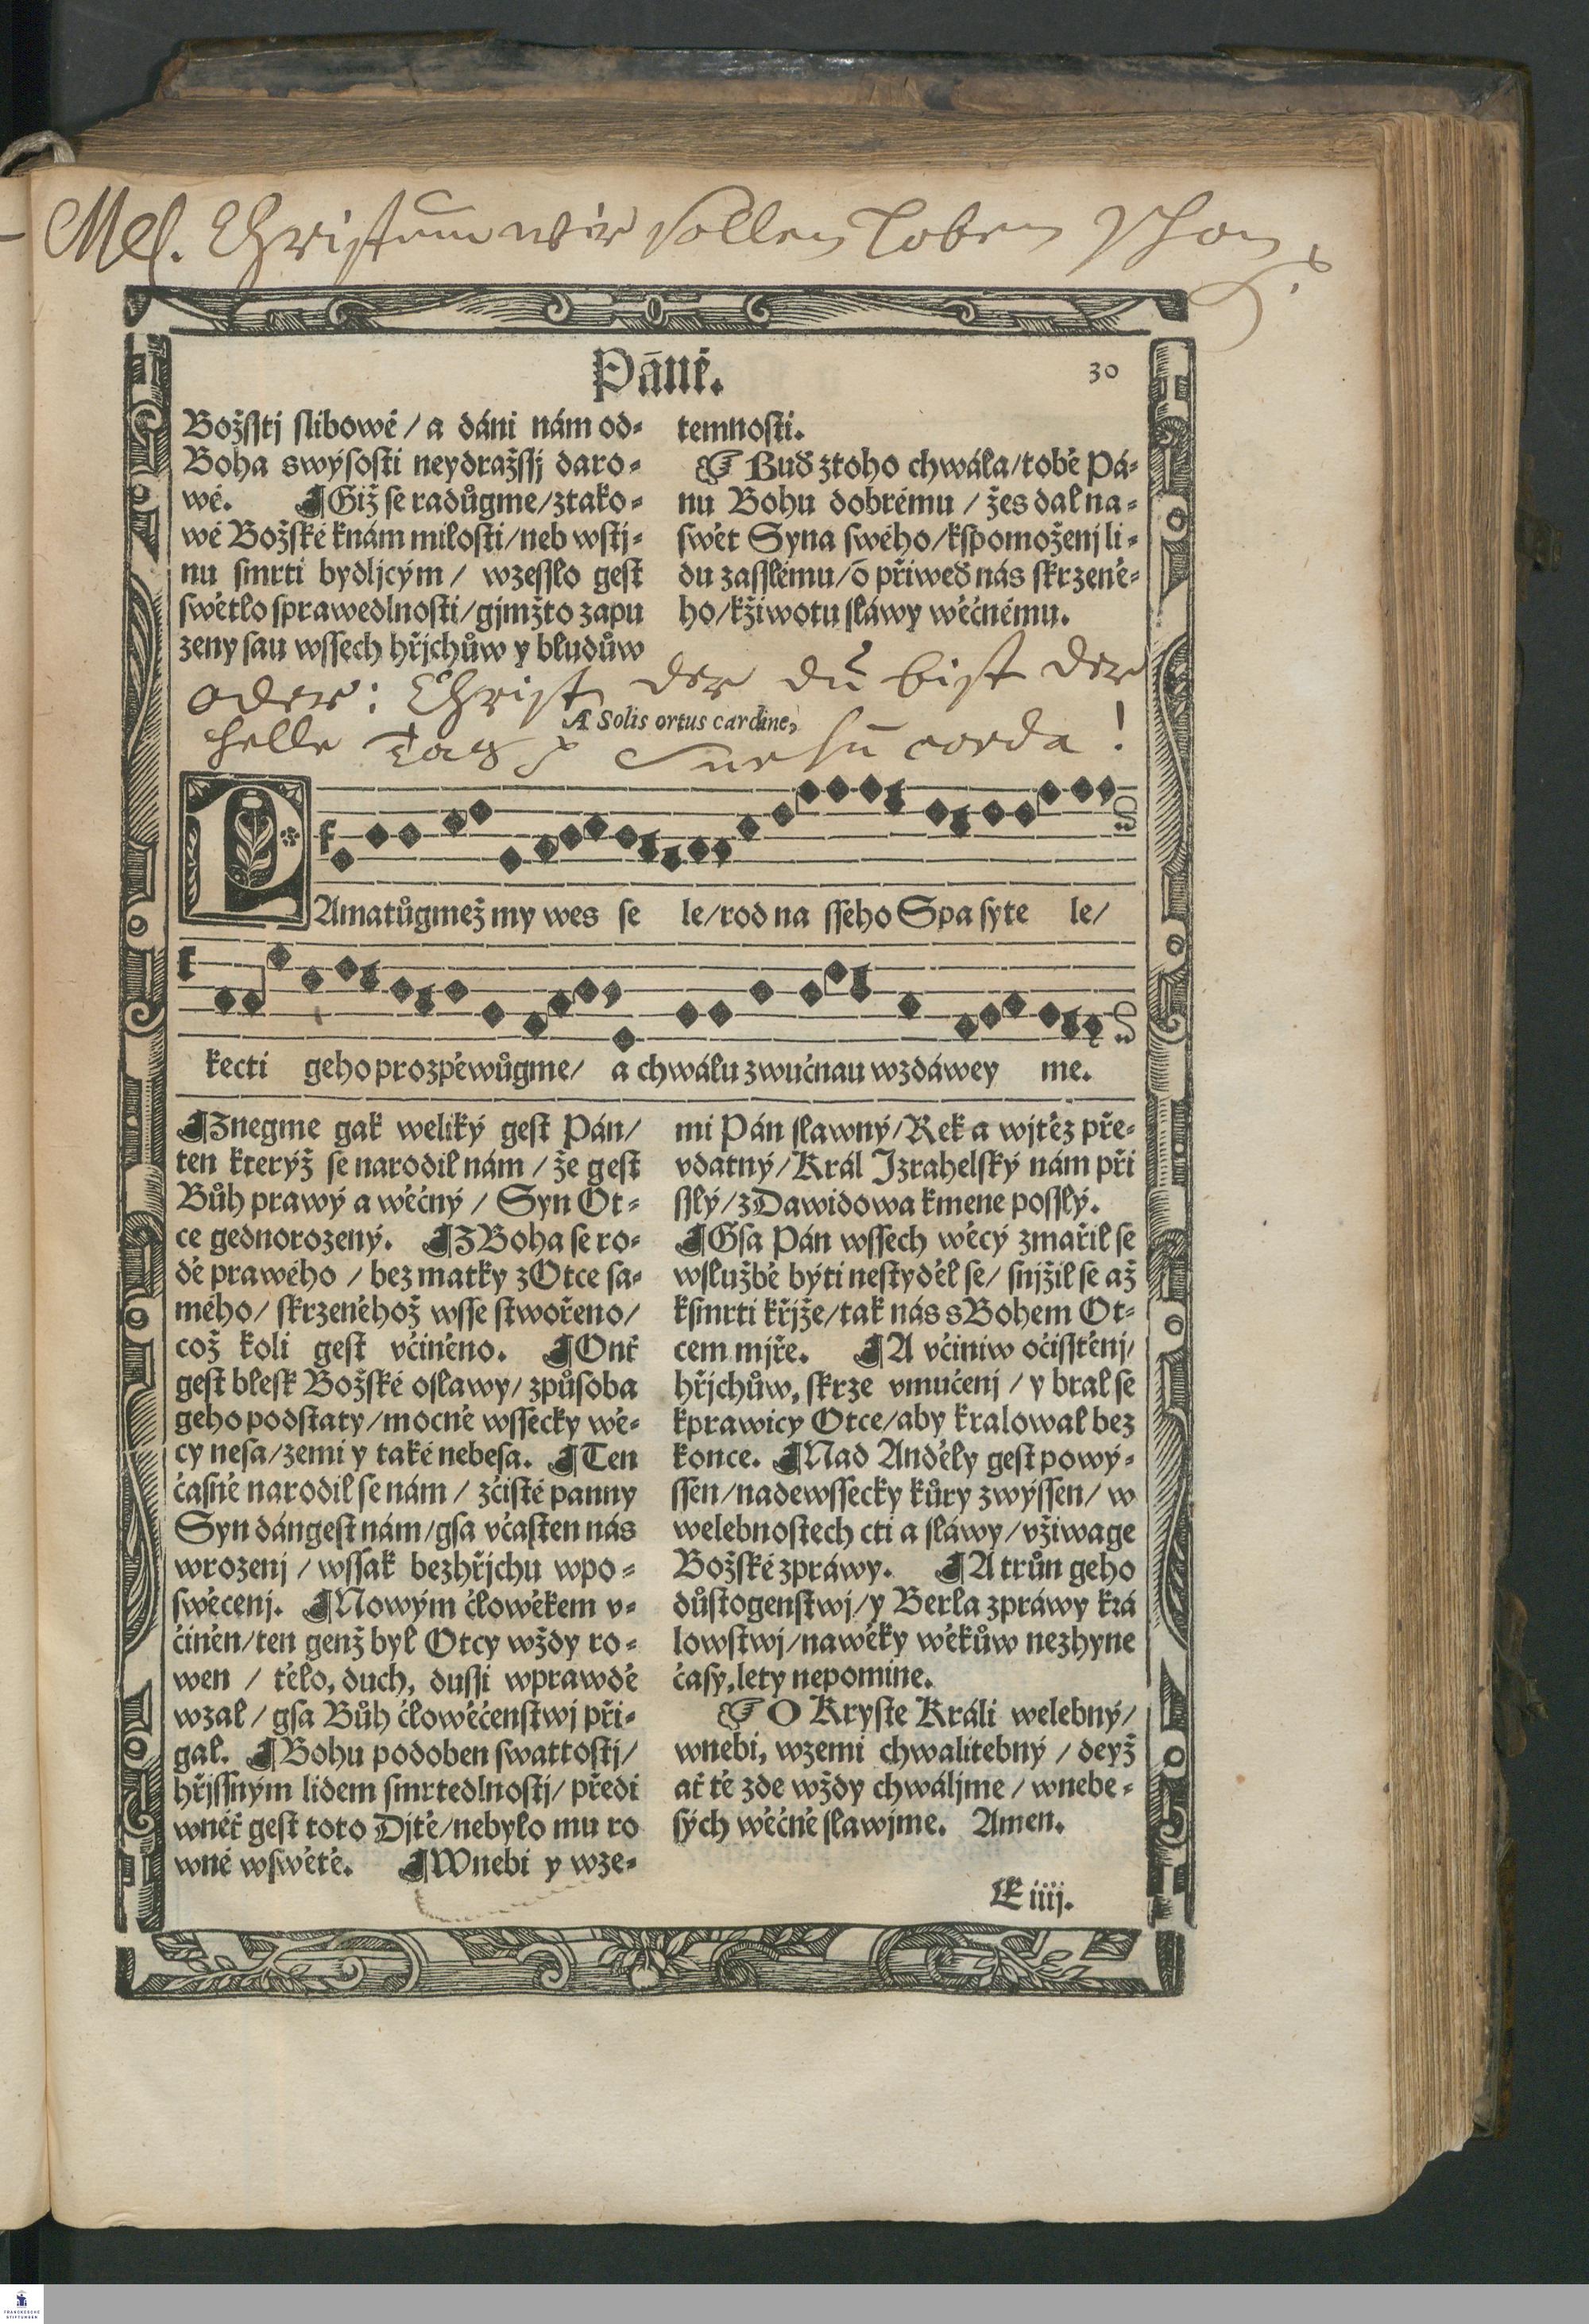 Mel. Christum wir sollen loben schon
Pāně.
30
Božsstj slibowé / a dáni nám od⸗
Boha swýsosti neydražssj daro⸗
wé. ¶Giž se radůgme/ztako⸗
wé Božské knám milosti/neb wstj⸗
nu smrti bydljcým / wzesslo gest
swětlo sprawedlnosti/gjmžto zapu
zeny sau wssech hřjchůw y bludůw
temnosti.
☞ Buď ztoho chwála/tobě Pá⸗
nu Bohu dobrému / žes dal na⸗
swět Syna swého/kspomoženj li⸗
du zasslému/ō přiweď nás skrzeně⸗
ho/kžiwotu sláwy wěčnému.
oder: Christ der dū bist der
helle Tag
A Solis ortus cardine,
Sursū corda!
PAmatůgmež my wes se le/rod na sseho Spa syte le/
kecti geho prozpěwůgme/ a chwálu zwučnau wzdáwey me.
¶Znegme gak weliký gest Pán/
ten kterýž se narodil nám / že gest
Bůh prawý a wěčný / Syn Ot⸗
ce gednorozený. ¶Z Boha se ro⸗
dě prawého / bez matky z Otce sa⸗
mého/ skrzeněhož wsse stwořeno/
což koli gest včiněno. ¶Onť
gest blesk Božské oslawy/ způsoba
geho podstaty/mocně wssecky wě⸗
cy nesa/zemi y také nebesa. ¶Ten
časně narodil se nám / zčisté panny
Syn dángest nám/gsa včasten nás
wrozenj / wssak bezhřjchu wpo⸗
swěcenj. ¶Nowým člowěkem v⸗
činěn/ten genž byl Otcy wždy ro⸗
wen / tělo, duch, dussi wprawdě
wzal / gsa Bůh člowěčenstwj při⸗
gal. ¶Bohu podoben swattostj/
hřjssným lidem smrtedlnostj/ předi
wněť gest toto Djtě/nebylo mu ro
wné wswětě. ¶Wnebi y wze⸗
mi Pán slawný/Rek a wjtěz pře⸗
vdatný/Král Izrahelský nám při
sslý/zDawidowa kmene posslý.
¶Gsa Pán wssech wěcý zmařil se
wslužbě býti nestyděl se/ snjžil se až
ksmrti křjže/tak nás s Bohem Ot⸗
cem mjře. ¶A včiniw očisstěnj/
hřjchůw, skrze vmučenj / y bral se
kprawicy Otce/aby kralowal bez
konce. ¶Nad Anděly gest powý⸗
ssen/nadewssecky kůry zwýssen/ w
welebnostech cti a sláwy/vžiwage
Božské zpráwy. ¶A trůn geho
důstogenstwj/y Berla zpráwy krá
lowstwj/nawěky wěkůw nezhyne
časy,lety nepomine.
☞ O Kryste Králi welebný/
wnebi, wzemi chwalitebný / deyž
ať tě zde wždy chwáljme / wnebe⸗
sých wěčně slawjme. Amen.
E iiij.
FRANCKESCHE
STIFTUNGEN